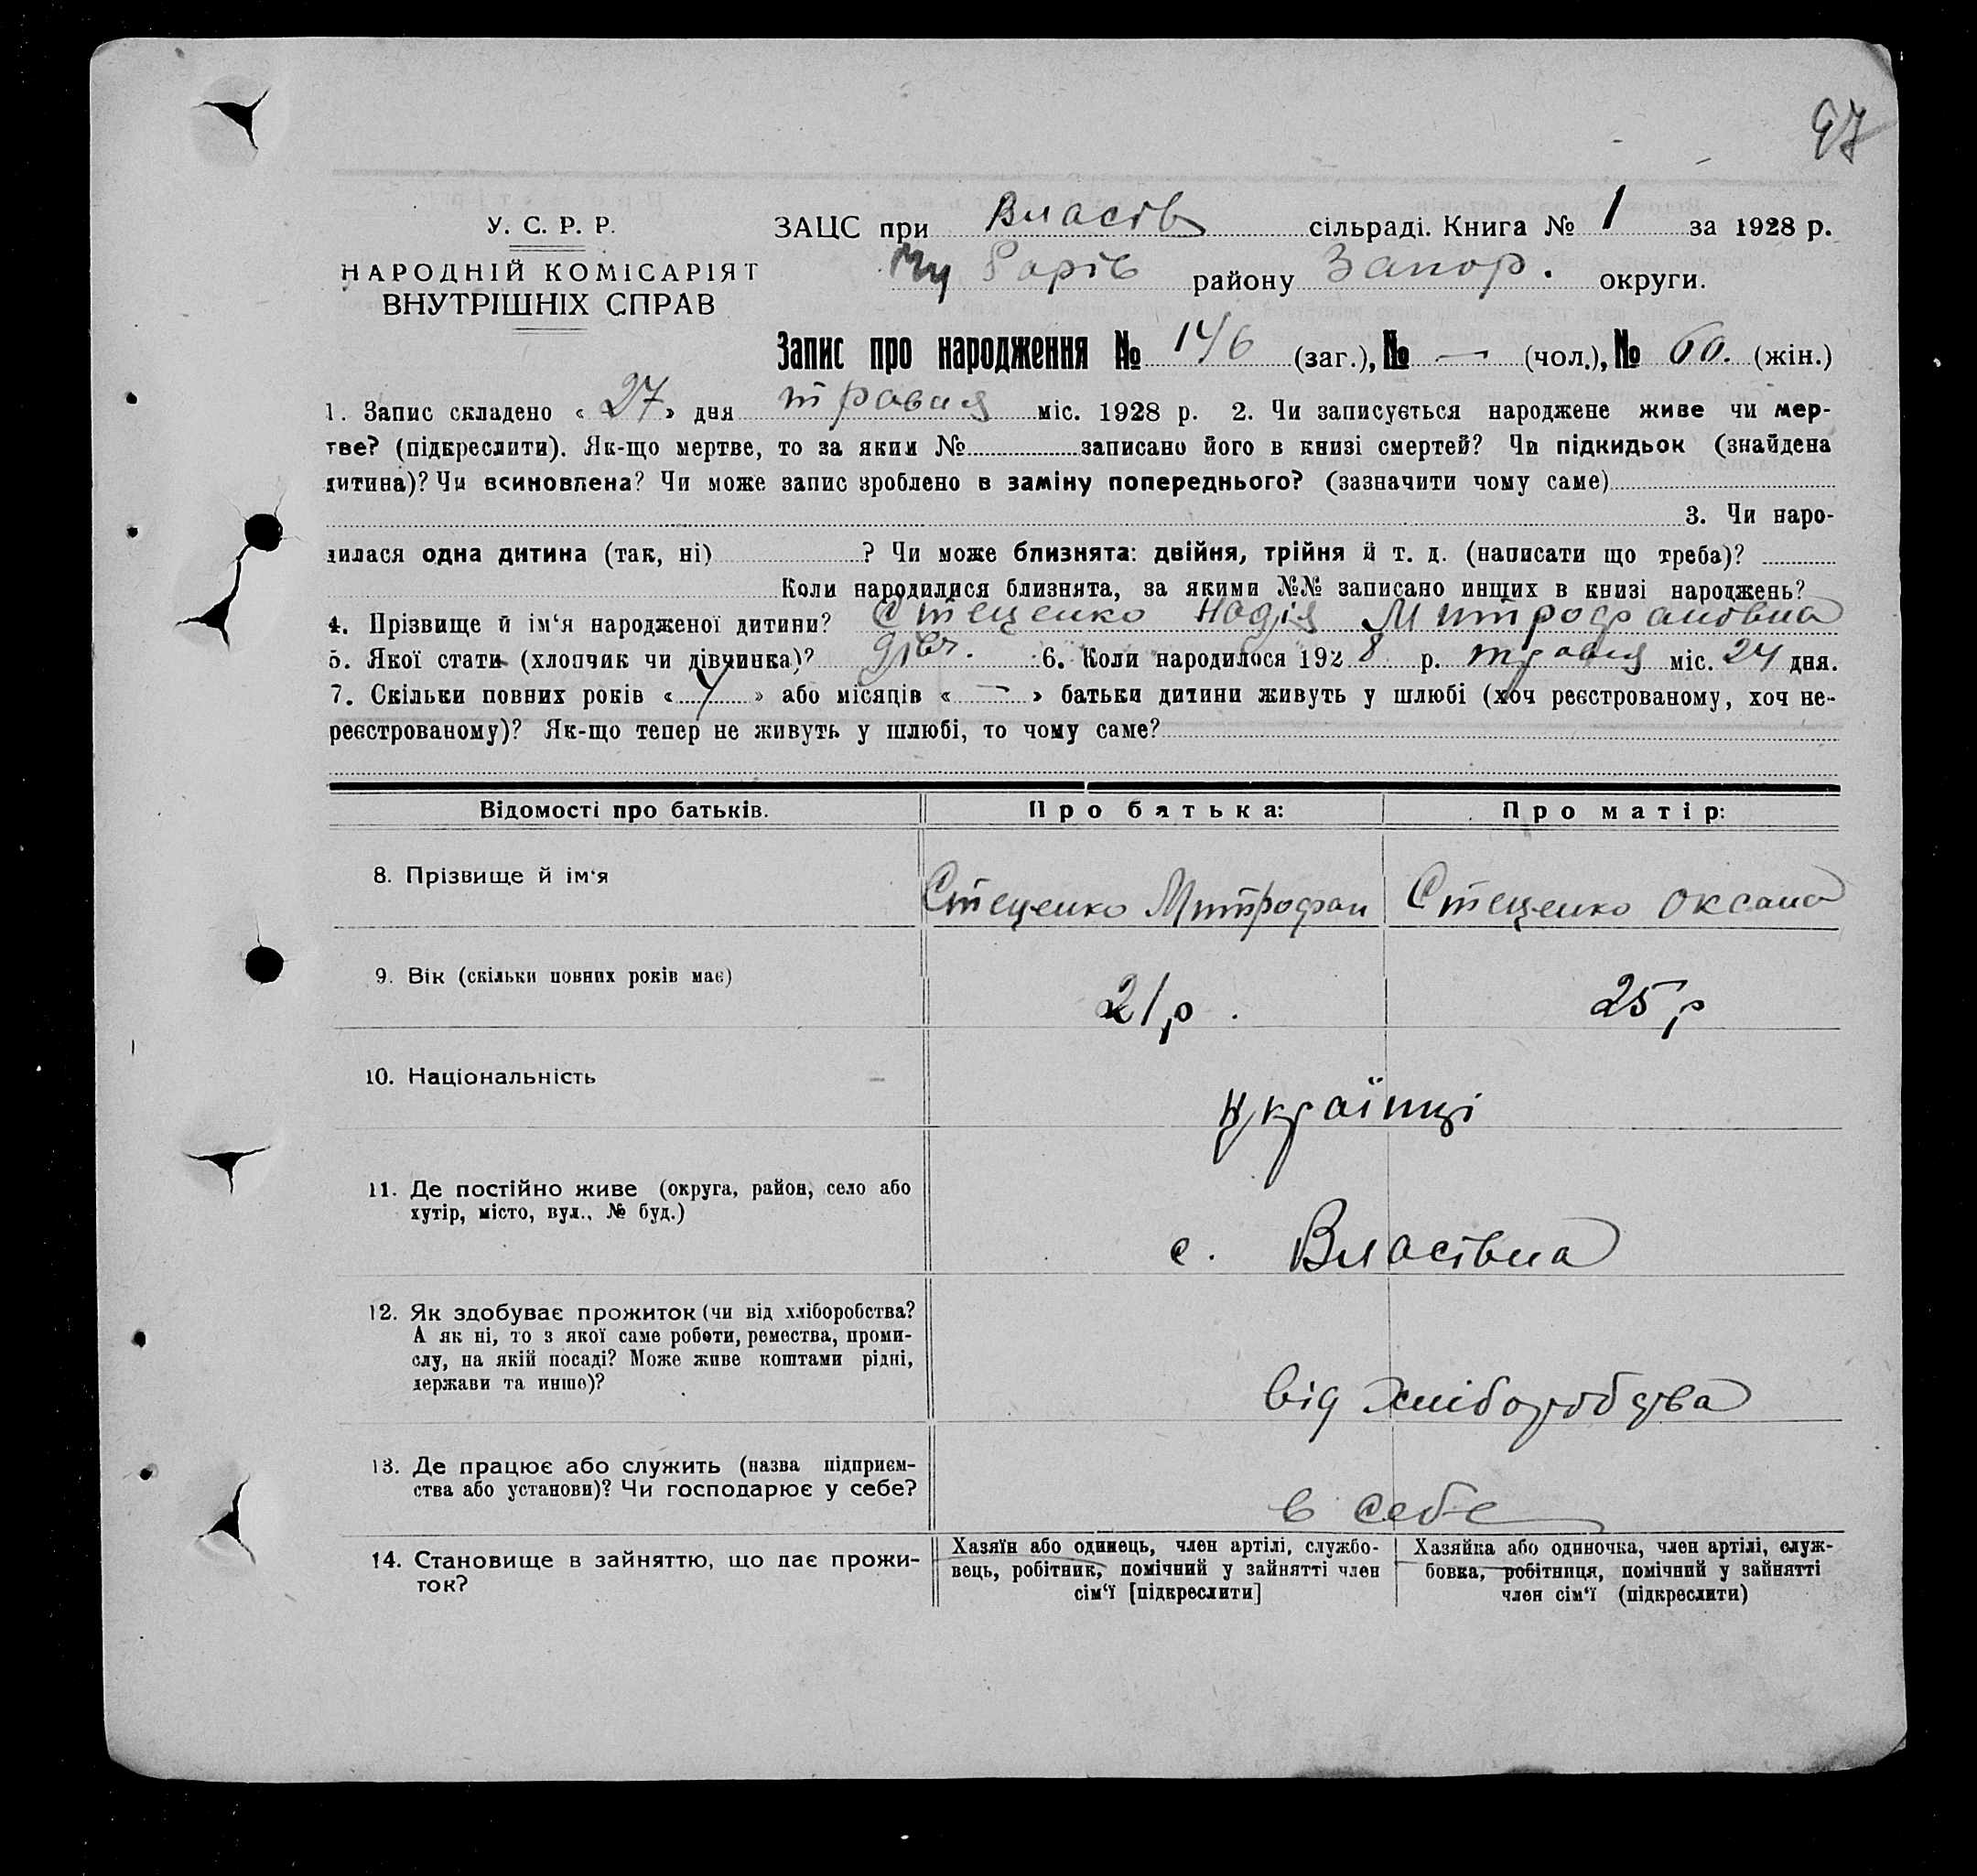 97
У. С. Р. Р.
НАРОДНІЙ КОМІСАРІЯТ
ВНУТРІШНІХ СПРАВ
ЗАЦС при Власів сільраді. Книга № 1 за 1928 р.
району Запор. округи.
Запис про народження № 146 (заг.), № — (чол.), № 60. (жін.)
1. Запис складено « 27 » дня травня міс. 1928 р. 2. Чи записується народжене живе чи мер-
тве? (підкреслити). Як-що мертве, то за яким № записано його в книзі смертей? Чи підкидьок (знайдена
дитина)? Чи всиновлена? Чи може запис зроблено в заміну попереднього? (зазначити чому саме)
3. Чи наро-
дилася одна дитина (так, ні) ? Чи може близнята: двійня, трійня й т. д. (написати що треба)?
Коли народилися близнята, за якими №№ записано инших в книзі народжень?
4. Прізвище й ім‘я народженої дитини? Стеценко Надія Митрофановна
5. Якої стати (хлопчик чи дівчинка)? дівч. 6. Коли народилося 1928 р. травня міс. 24 дня.
7. Скільки повних років « 4 » або місяців « — » батьки дитини живуть у шлюбі (хоч реєстрованому, хоч не-
реєстрованому)? Як-що тепер не живуть у шлюбі, то чому саме?
Відомості про батьків. Про батька: Про матір:
8. Прізвище й ім‘я Стеценко Митрофан Стеценко Оксана
9. Вік (скільки повних років має) 21 р. 25 р
10. Національність українці
11. Де постійно живе (округа, район, село або
хутір, місто, вул., № буд.)
с. Власівка
12. Як здобуває прожиток (чи від хліборобства?
А як ні, то з якої саме роботи, ремества, проми-
слу, на якій посаді? Може живе коштами рідні,
держави та инше)?
від хліборобства
13. Де працює або служить (назва підприєм-
ства або установи)? Чи господарює у себе?
в себе
14. Становище в зайняттю, що дає прожи-
ток?
Хазяїн або одинець, член артілі, службо-
вець, робітник, помічний у зайнятті член
сім‘ї [підкреслити]
Хазяйка або одиночка, член артілі, служ-
бовка, робітниця, помічний у зайнятті
член сім‘ї (підкреслити)